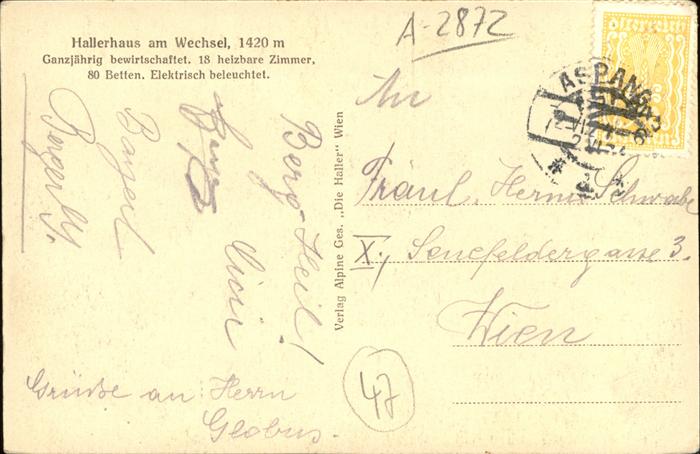 Hallerhaus am Wechsel, 1420 m
Ganzjährig bewirtschaftet. 18 heizbare Zimmer,
80 Betten. Elektrisch beleuchtet.
A-2872
österreich
ASPANG
An
Fräul. Herma Schwabe
X., Senefeldergasse 3.
Wien
Verlag Alpine Ges. „Die Haller" Wien
Berg Heil!
Grüße an Herrn
Globus.
47